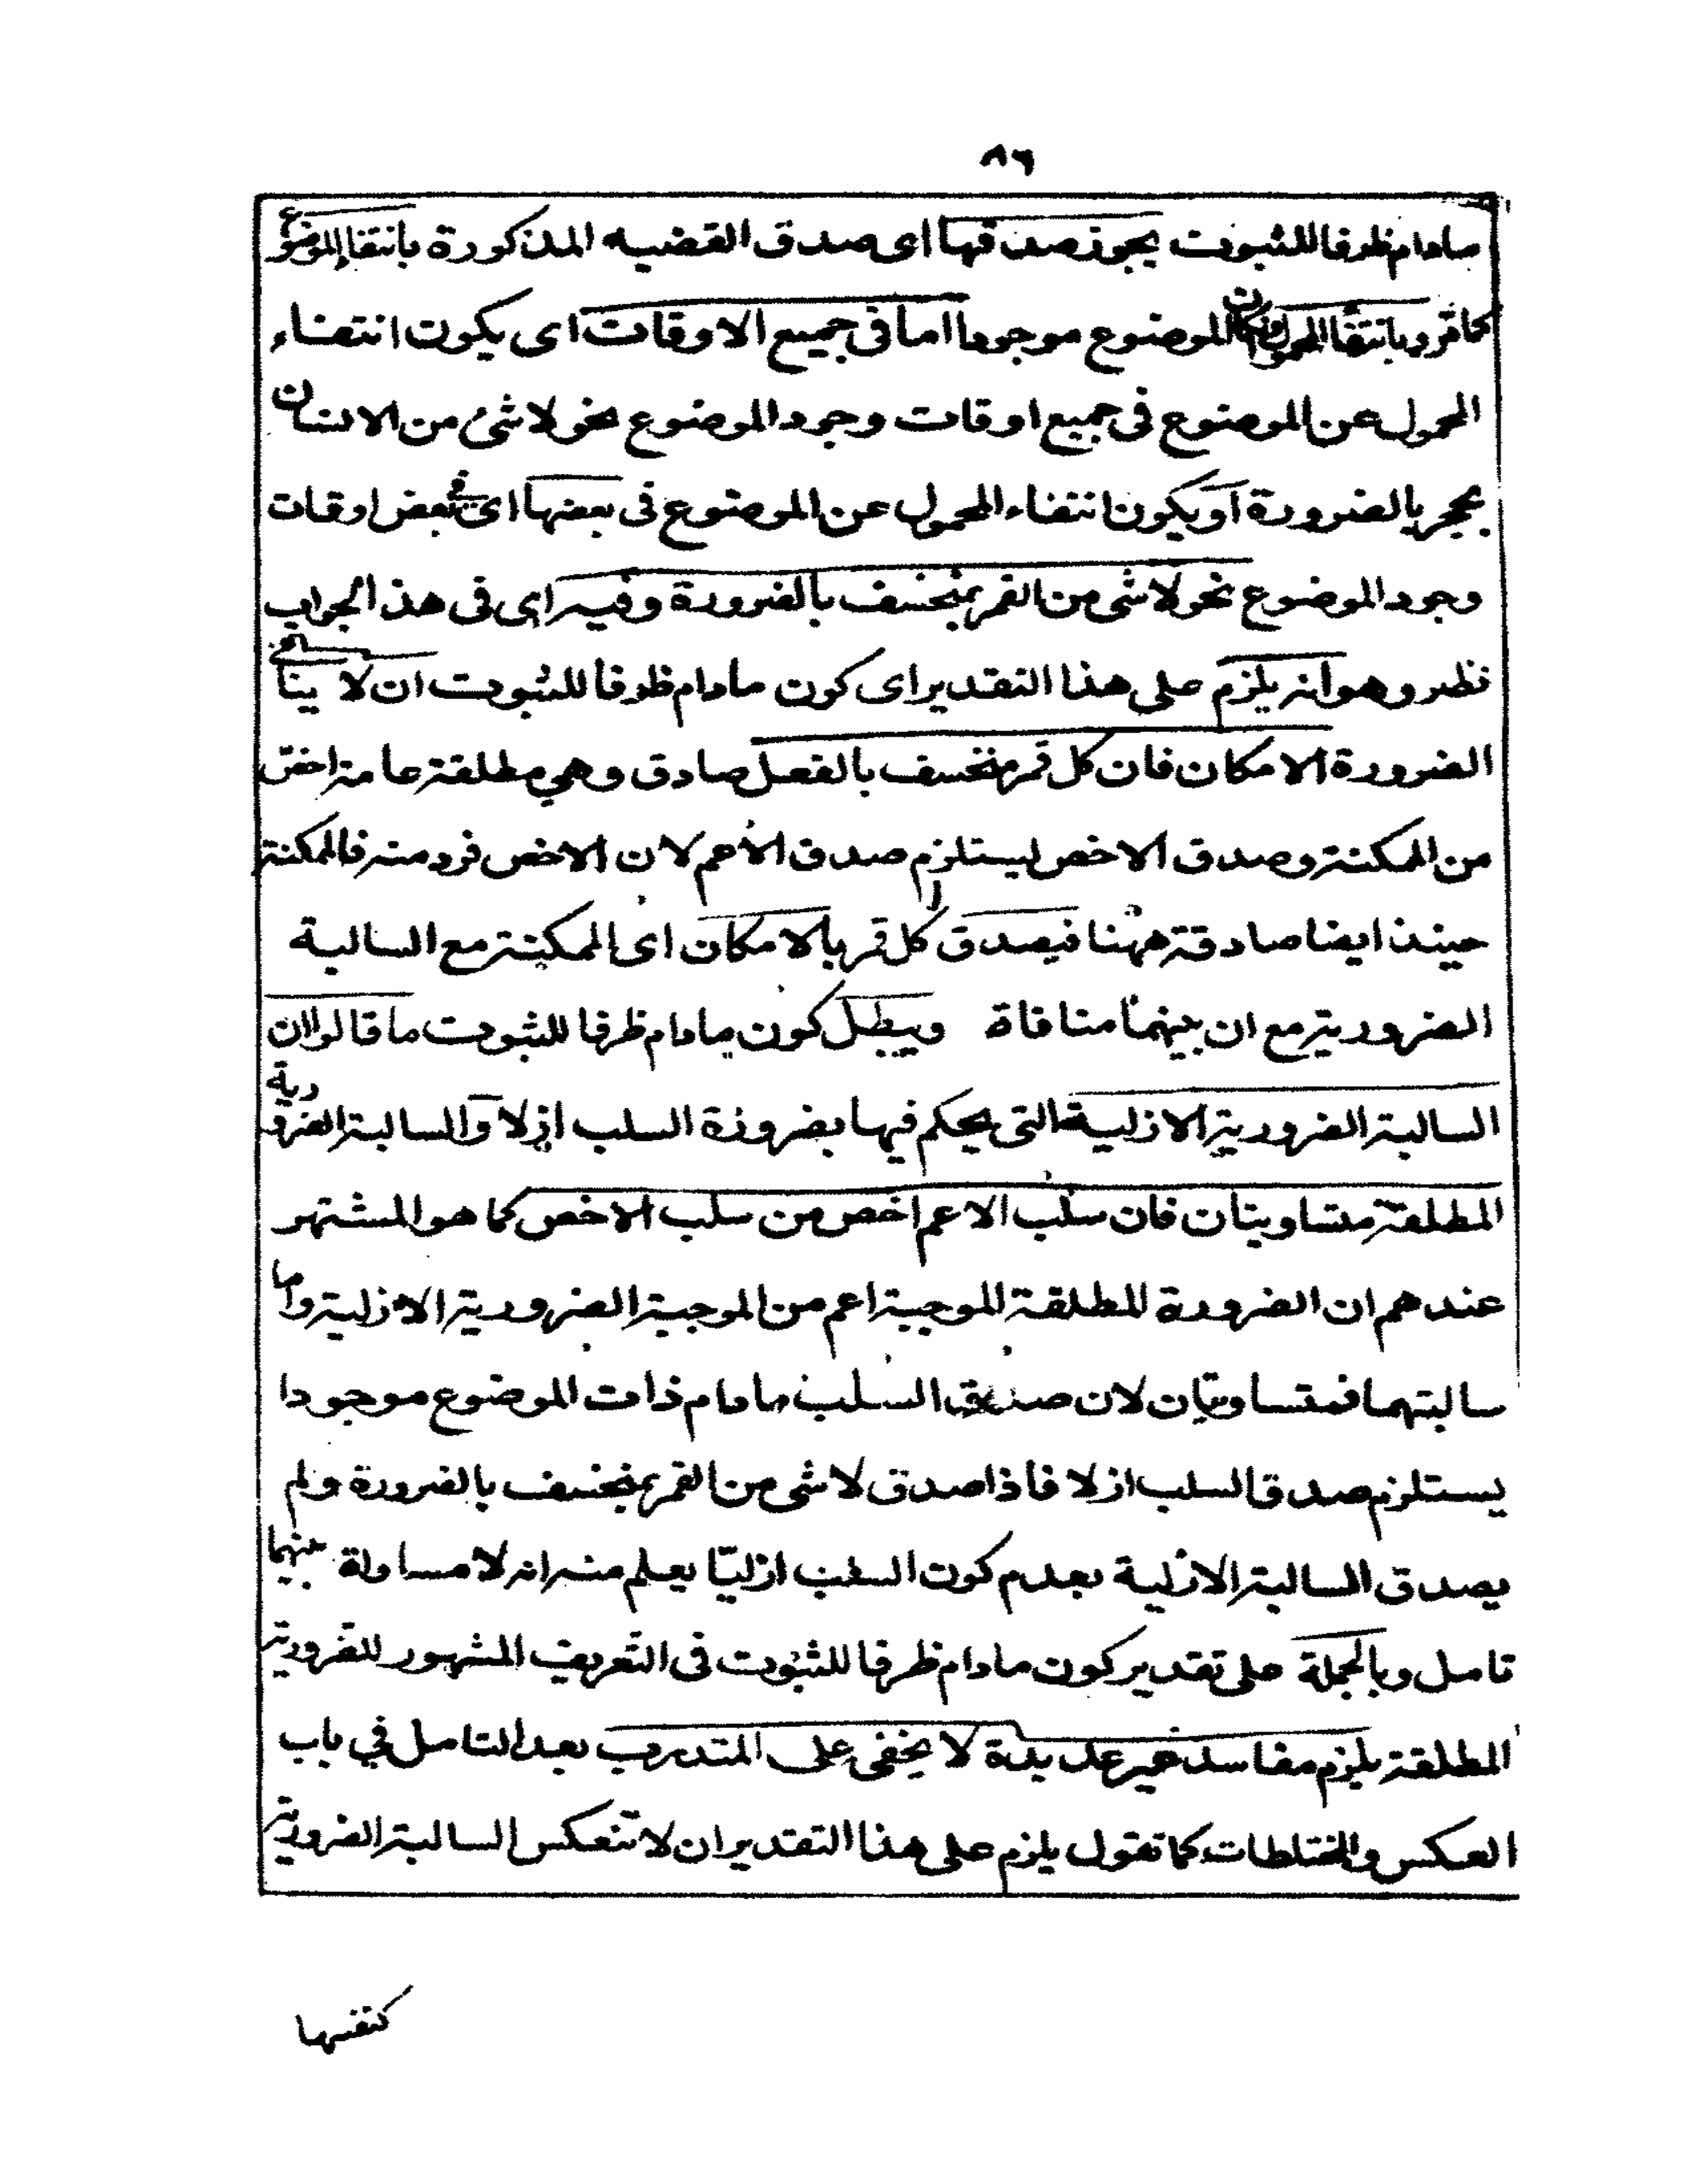 ٨٦
مادام ظرفا للثبوت يجوز صدقها اى صدق القضيه المذكورة بانتفاء الموضوع
كما قرر وبانتفاء المحمول وان كان الموضوع موجودا اما فى جميع الاوقات اى يكون انتفاء
المحمول عن الموضوع فى جميع اوقات وجود الموضوع نحو لا شئ من الانسان
بحجر بالضرورة او يكون انتفاء المحمول عن الموضوع فى بعضها اى فى بعض اوقات
وجود الموضوع نحو لا شى من القمر بمنخسف بالضرورة وفيه اى فى هذ الجواب
نظر وهو انه يلزم على هذا التقدير اى كون مادام ظرفا للثبوت ان لا ينافى
الضرورة الامكان فان كل قمر منخسف بالفعل صادق وهى مطلقة عامة اخص
من الممكنة وصدق الاخص يستلزم صدق الاعم لان الاخص فرد منه فالممكنة
حينئذ ايضا صادقة ههنا فيصدق كل قمر بالامكان اى الممكنة مع السالبة
الضرورية مع ان بينهما منافاة ويبطل كون مادام ظرفا للثبوت ما قالوا ان
السالبة الضرورية الازلية التى يحكم فيها بضرورة السلب ازلا والسالبة الضرورية
المطلقة متساويتان فان سلب الاعم اخص من سلب الاخص كما هو المشتهر
عندهم ان الضرورة المطلقة الموجبة اعم من الموجبة الضرورية الازلية واما
سالبتهما فمتساويتان لان صدق السلب مادام ذات الموضوع موجودا
يستلزم صدق السلب ازلا فاذا صدق لا شى من القمر بمنخسف بالضرورة ولم
يصدق السالبة الازلية بعدم كون السلب ازليا يعلم منه انه لا مساواة بينهما
تامل وبالجملة على تقدير كون مادام ظرفا للثبوت فى التعريف المشهور للضرورية
المطلقة يلزم مفاسد غير عديدة لا يخفى على المتدرب بعد التامل في باب
العكس والمختلطات كما تقول يلزم على هذا التقدير ان لا تنعكس السالبة الضرورية
كنفسها